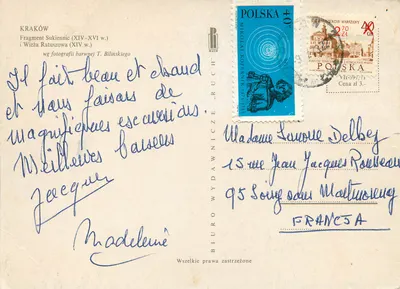 KRAKÓW
Fragment Sukiennic (XIV-XVI w.)
i Wieża Ratuszowa (XIV w.)
wg fotografii barwnej T. Bilińskiego
Il fait beau et chaud
et nous faisons de
magnifiques excursions.
Meilleurs baisers
Jacques
Madeleine
BIURO WYDAWNICZE „RUCH"
Wszelkie prawa zastrzeżone
POLSKA 40
WARSZAWY
40
POLSKA
Cena zł 3.-
Madame Simone Delbey
15 rue Jean Jacques Rousseau
95 Soisy sous Montmorency
FRANCJA